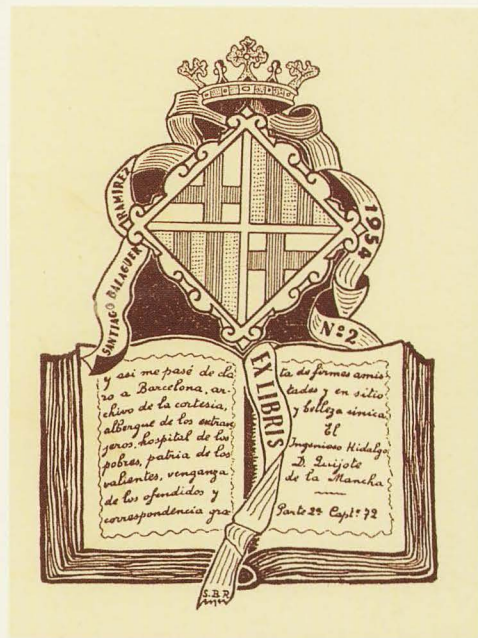 SANTIAGO BALAGUER RAMIREZ
1954
Nº 2
EX LIBRIS
y asi me pasé de cla
ro a Barcelona, ar-
chivo de la cortesia,
albergue de los extran
jeros, hospital de los
pobres, patria de los
valientes, venganza
de los ofendidos y
correspondencia gra
ta de firmes amis-
tades y en sitio
y belleza única.
El
Ingenioso Hidalgo
D. Quijote
de la Mancha
Parte 2ª Captº 72
S.B.R.